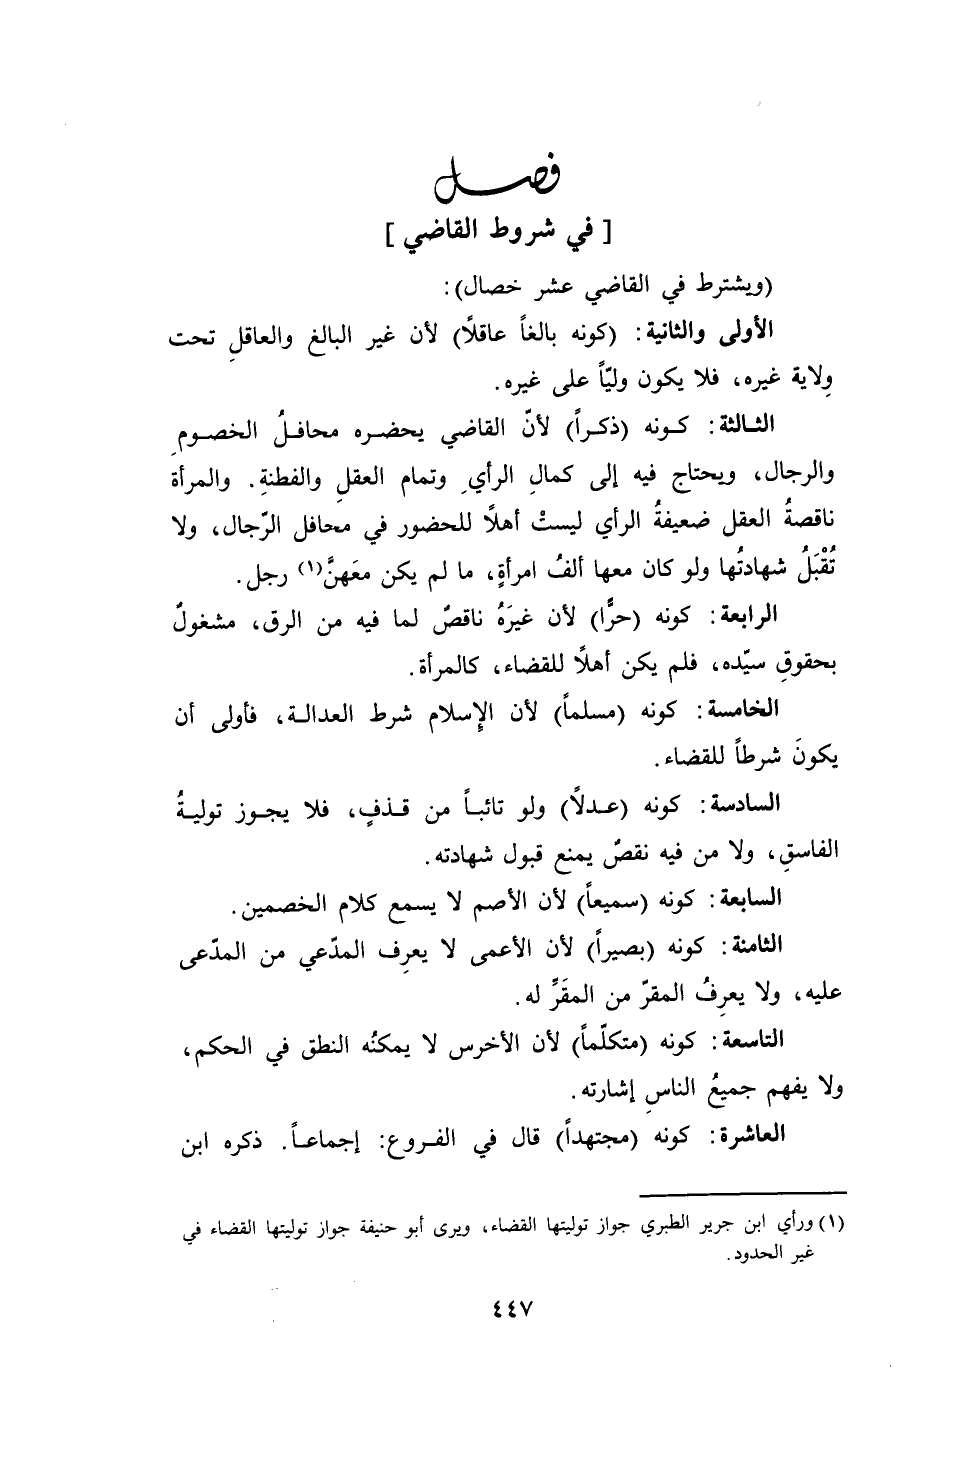 فصل
[ في شروط القاضي ]
(ويشترط في القاضي عشر خصال) :
الأولى والثانية : (كونه بالغاً عاقلًا) لأن غير البالغ والعاقلِ تحت
وِلاية غيره، فلا يكون وليّاً على غيره .
الثـالثة : كـونه (ذكـراً) لأنّ القاضي يحضـره محافـلُ الخصـومِ
والرجال، ويحتاج فيه إلى كمالِ الرأيِ وتمام العقلِ والفطنةِ . والمرأة
ناقصةُ العقل ضعيفةُ الرأي ليستْ أهلًا للحضور في محافل الرّجال، ولا
تُقْبَلُ شهادتُها ولو كان معها ألفُ امرأةٍ، ما لم يكن معَهنَّ(١) رجل .
الرابعة : كونه (حرًّا) لأن غيرَهُ ناقصٌ لما فيه من الرق، مشغولٌ
بحقوقِ سيّده، فلم يكن أهلًا للقضاء، كالمرأة .
الخامسة : كونه (مسلماً) لأن الإِسلام شرط العدالـة، فأولى أن
يكونَ شرطاً للقضاء .
السادسة : كونه (عـدلًا) ولو تائبـاً من قـذفٍ، فلا يجـوز توليـةُ
الفاسقِ، ولا من فيه نقصٌ يمنع قبول شهادته .
السابعة : كونه (سميعاً) لأن الأصم لا يسمع كلام الخصمين .
الثامنة : كونه (بصيراً) لأن الأعمى لا يعرِف المدّعي من المدّعى
عليه، ولا يعرِفُ المقرّ من المقَرِّ له .
التاسعة : كونه (متكلّماً) لأن الأخرس لا يمكنُه النطق في الحكم،
ولا يفهم جميعُ الناسِ إشارته .
العاشرة : كونه (مجتهداً) قال في الفـروع: إجماعـاً. ذكره ابن
(١) ورأي ابن جرير الطبري جواز توليتها القضاء، ويرى أبو حنيفة جواز توليتها القضاء في
غير الحدود .
٤٤٧